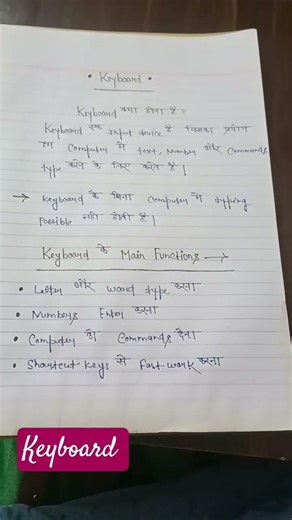 • Keyboard •
Keyboard क्या होता है?
Keyboard एक Input device है जिसका प्रयोग
हम Computer में text, Number और Commands
type करने के लिए करते है।
→ Keyboard के बिना Computer में typing
Possible नहीं होती है।
Keyboard के Main Functions →
• Letter और word type करना
• Numbers Enter करना
• Computer को Commands देना
• Shourtcut Keys से Fast work करना
Keyboard